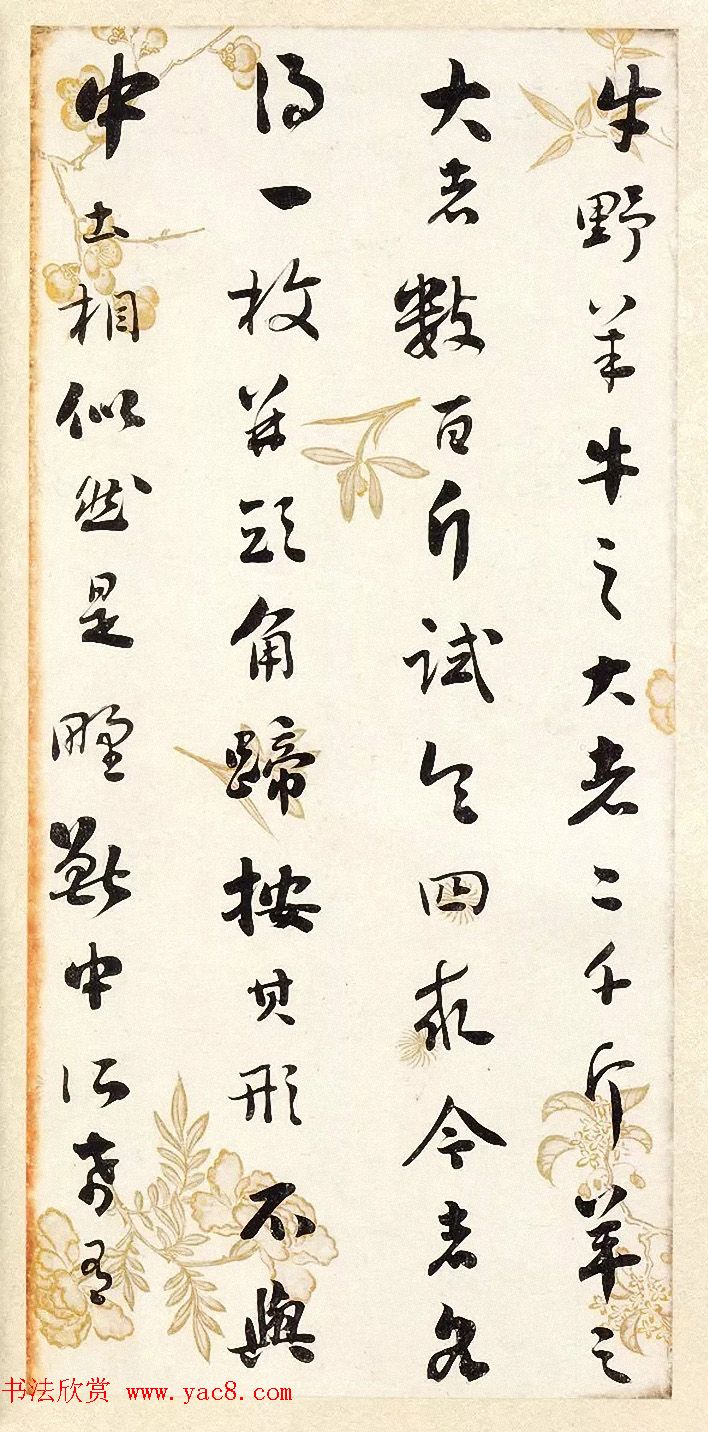 牛野羊牛之大者二千斤羊之
大者數百斤試令四求令者各
得一枚并頭角蹄按其形不與
中土相似然是野獸中所希有
书法欣赏 www.yac8.com